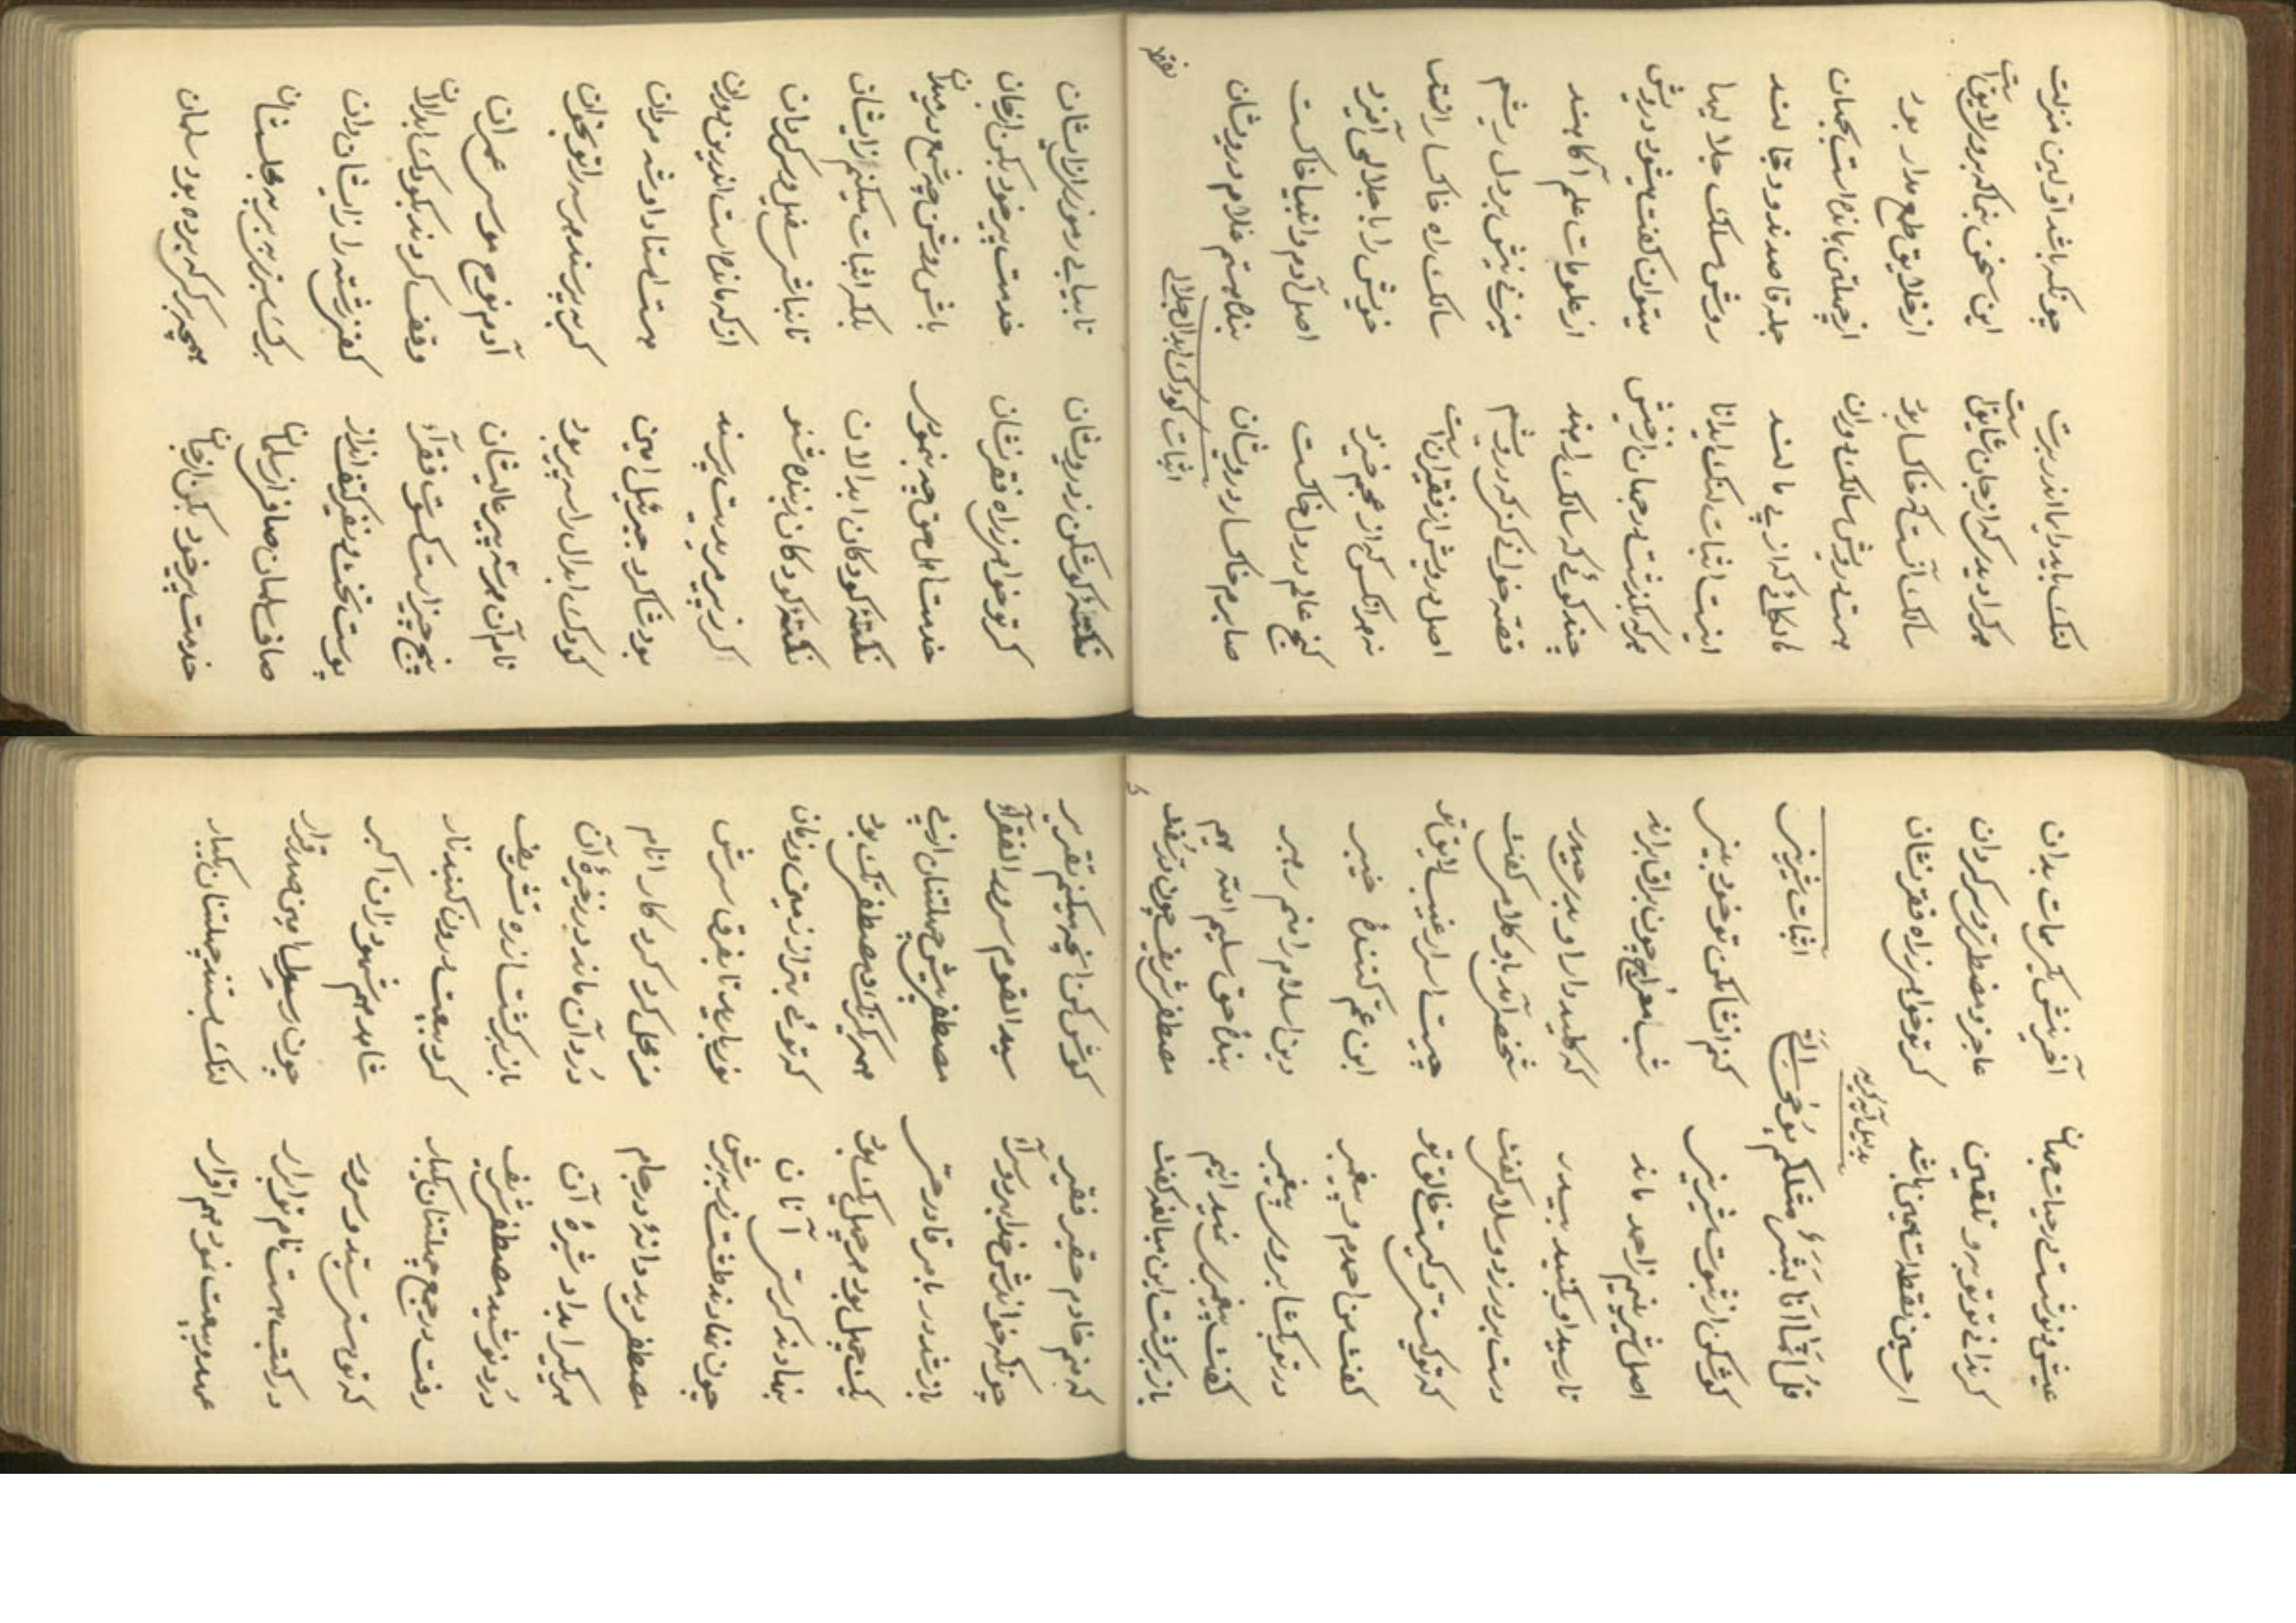 لنک باید دایما اندر برت چونکه باشد اولین منزلت
هرکرا دیدی که از جان شایق است این سخن بنما که بروی لایق است
سالک آنست که خاکسار بود از خلایق طمع مدار بود
هست درویش سالک دوران از چهلتن بمانده است بجهان
مالکانی که از پی مالند جمله قاصدند و دجالند
اینست اثبات لنک ابدانا روش و سلک جلالیها
هرکه بگذشت در جهان از خویش میتوان گفت میشود درویش
چند کوئی که سالک راهند از علومات علم آکاهند
قصه خوانی مکن که درویشم میزنی نیش بر دل ریشم
اصل درویشی از فقیران است سالک راه خاکساران است
نه هر انکس که از عجم خیزد خویش را با جلالی آمیزد
کنج عالم درون خاکست اصل آدم و انبیا خاکست
صابرم خاکسار درویشان بنده هستم غلام درویشان
اثبات کودک ابدال جلالی
نکتهٔ کوش کن ز درویشان تا بیابی رموز از ایشان
کر تو خواهی ز راه فقر نشان خدمت پیر خود بکن از جان
خدمت اهل حق چه بنمودی باش روشن چه شمع در میدان
نکتهٔ کودکان ابدالان بلکه اثبات میکنم زایشان
نکتهٔ کودکان ز بنده شنو تا نباشی سفیل و سرکردان
کر ز پیر مریدیت پرسند از که مانده است اندرین دوران
بود شاکرد جبرئیل امین هست استاد او شه مردان
کودک ابدال را سه پیر بود کر بپرسند هر سه را تو بخوان
نام آن هر سه پیر عالیشان آدم نوح موسی عمران
پنج چیز است کسوت فقراء وقف کردند بکودک ابدالان
پوست تخت و نفیر کتف انداز کفنی رشته را زایشان دان
صاف سلمان صافی از سلمان برک سبزی بر به مجلستان
خدمت پیر خود بکن از جان همچه برکی که برده بود سلمان
عیش و نوشت در حیات جهان آفرینش یکی ممات بدان
کر ندانی تو توبه و تلقین عاجز و مضطری و سرکردان
نقطه است همین باشد کر تو خواهی ز راه فقر نشان
بدلیل آیه کریمه
قل انما انا بشر مثلکم یوحی الی اثبات شیرینی
کوش کن از ثبوت شیرینی کنم انشا مکن تو خود بینی
اصل شیرینی ز احمد ماند شب معراج چون براق براند
تا رسید او بکنبد بیدر که کلید دار او بد حیدر
دست بر در زد و سلامی گفت شخصی آمد باو کلامی گفت
که تو کیستی و کیست خالق تو چیست اسرار غیب لایق تو
گفت من احمدم و پیغمبر ابن عم کنندهٔ خیبر
در تو بکشا بروی پیغمبر دین اسلام را منم رهبر
گفت پیغمبری نمیدانیم بندهٔ حق سلیم الله هیم
باز برکشت این مبالغه گفت مصطفی شریف چون در سفت
که منم خادم حقیر فقیر کوش کن انچه میکنم تقریر
چونکه خواندش خدا سید القوم سرور الفقراء
باز شد در بامر قادر حی مصطفی پیش چهلتنان از پی
یک چهل بود هر چهل یک بود همه یکرنک و مصطفی تک بود
بنهادند کرسی آنان که توئی بهتر از زمین و زمان
چون نهادند طشت زیر سرش نور بارید تا بفرق سرش
مصطفی دید دانهٔ در جام کرد کرد کار انام
هر یکی را بداد شیرهٔ آن درد آن ماند در ذخیرهٔ آن
درد نوشید مصطفی شریف باز برکشت ازره تشریف
رفت در جمع چهلتنان یکبار کرد بیعت درون کنبد نار
که تو هستی سید و سرور شاهد هم شهود زان اکبر
در کتب هست نام تو ابرار چون رسول امین صدر قرار
عهد و بیعت نمود هم اقرار لنک بستند چهلتنان یکبار